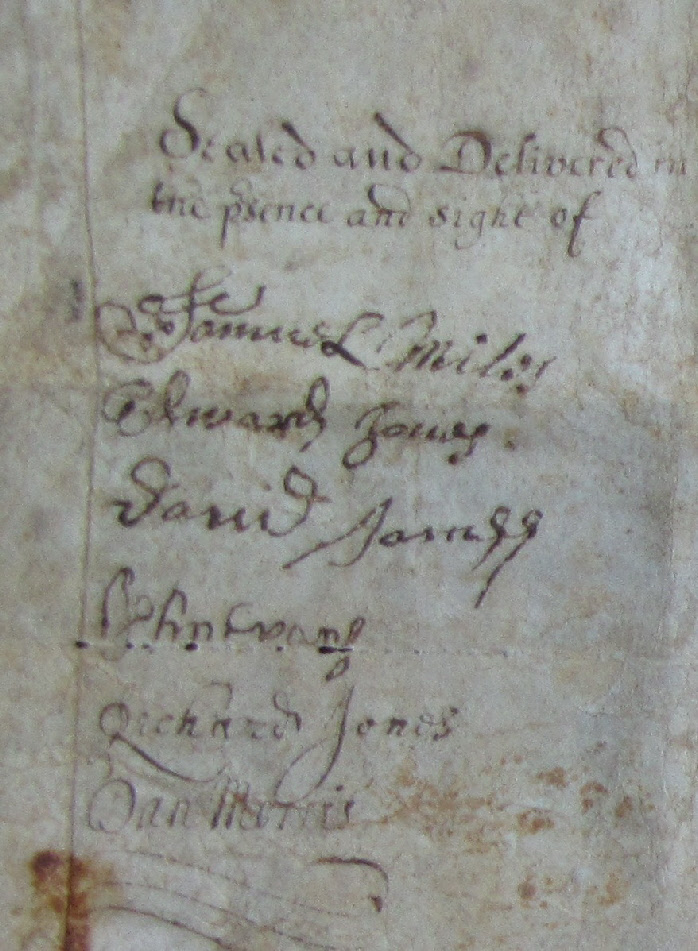 Sealed and Delivered in
the psence and sight of
Samuel Miles
Edward Jones
David Jones
John Evans
Richard Jones
Dan Morris